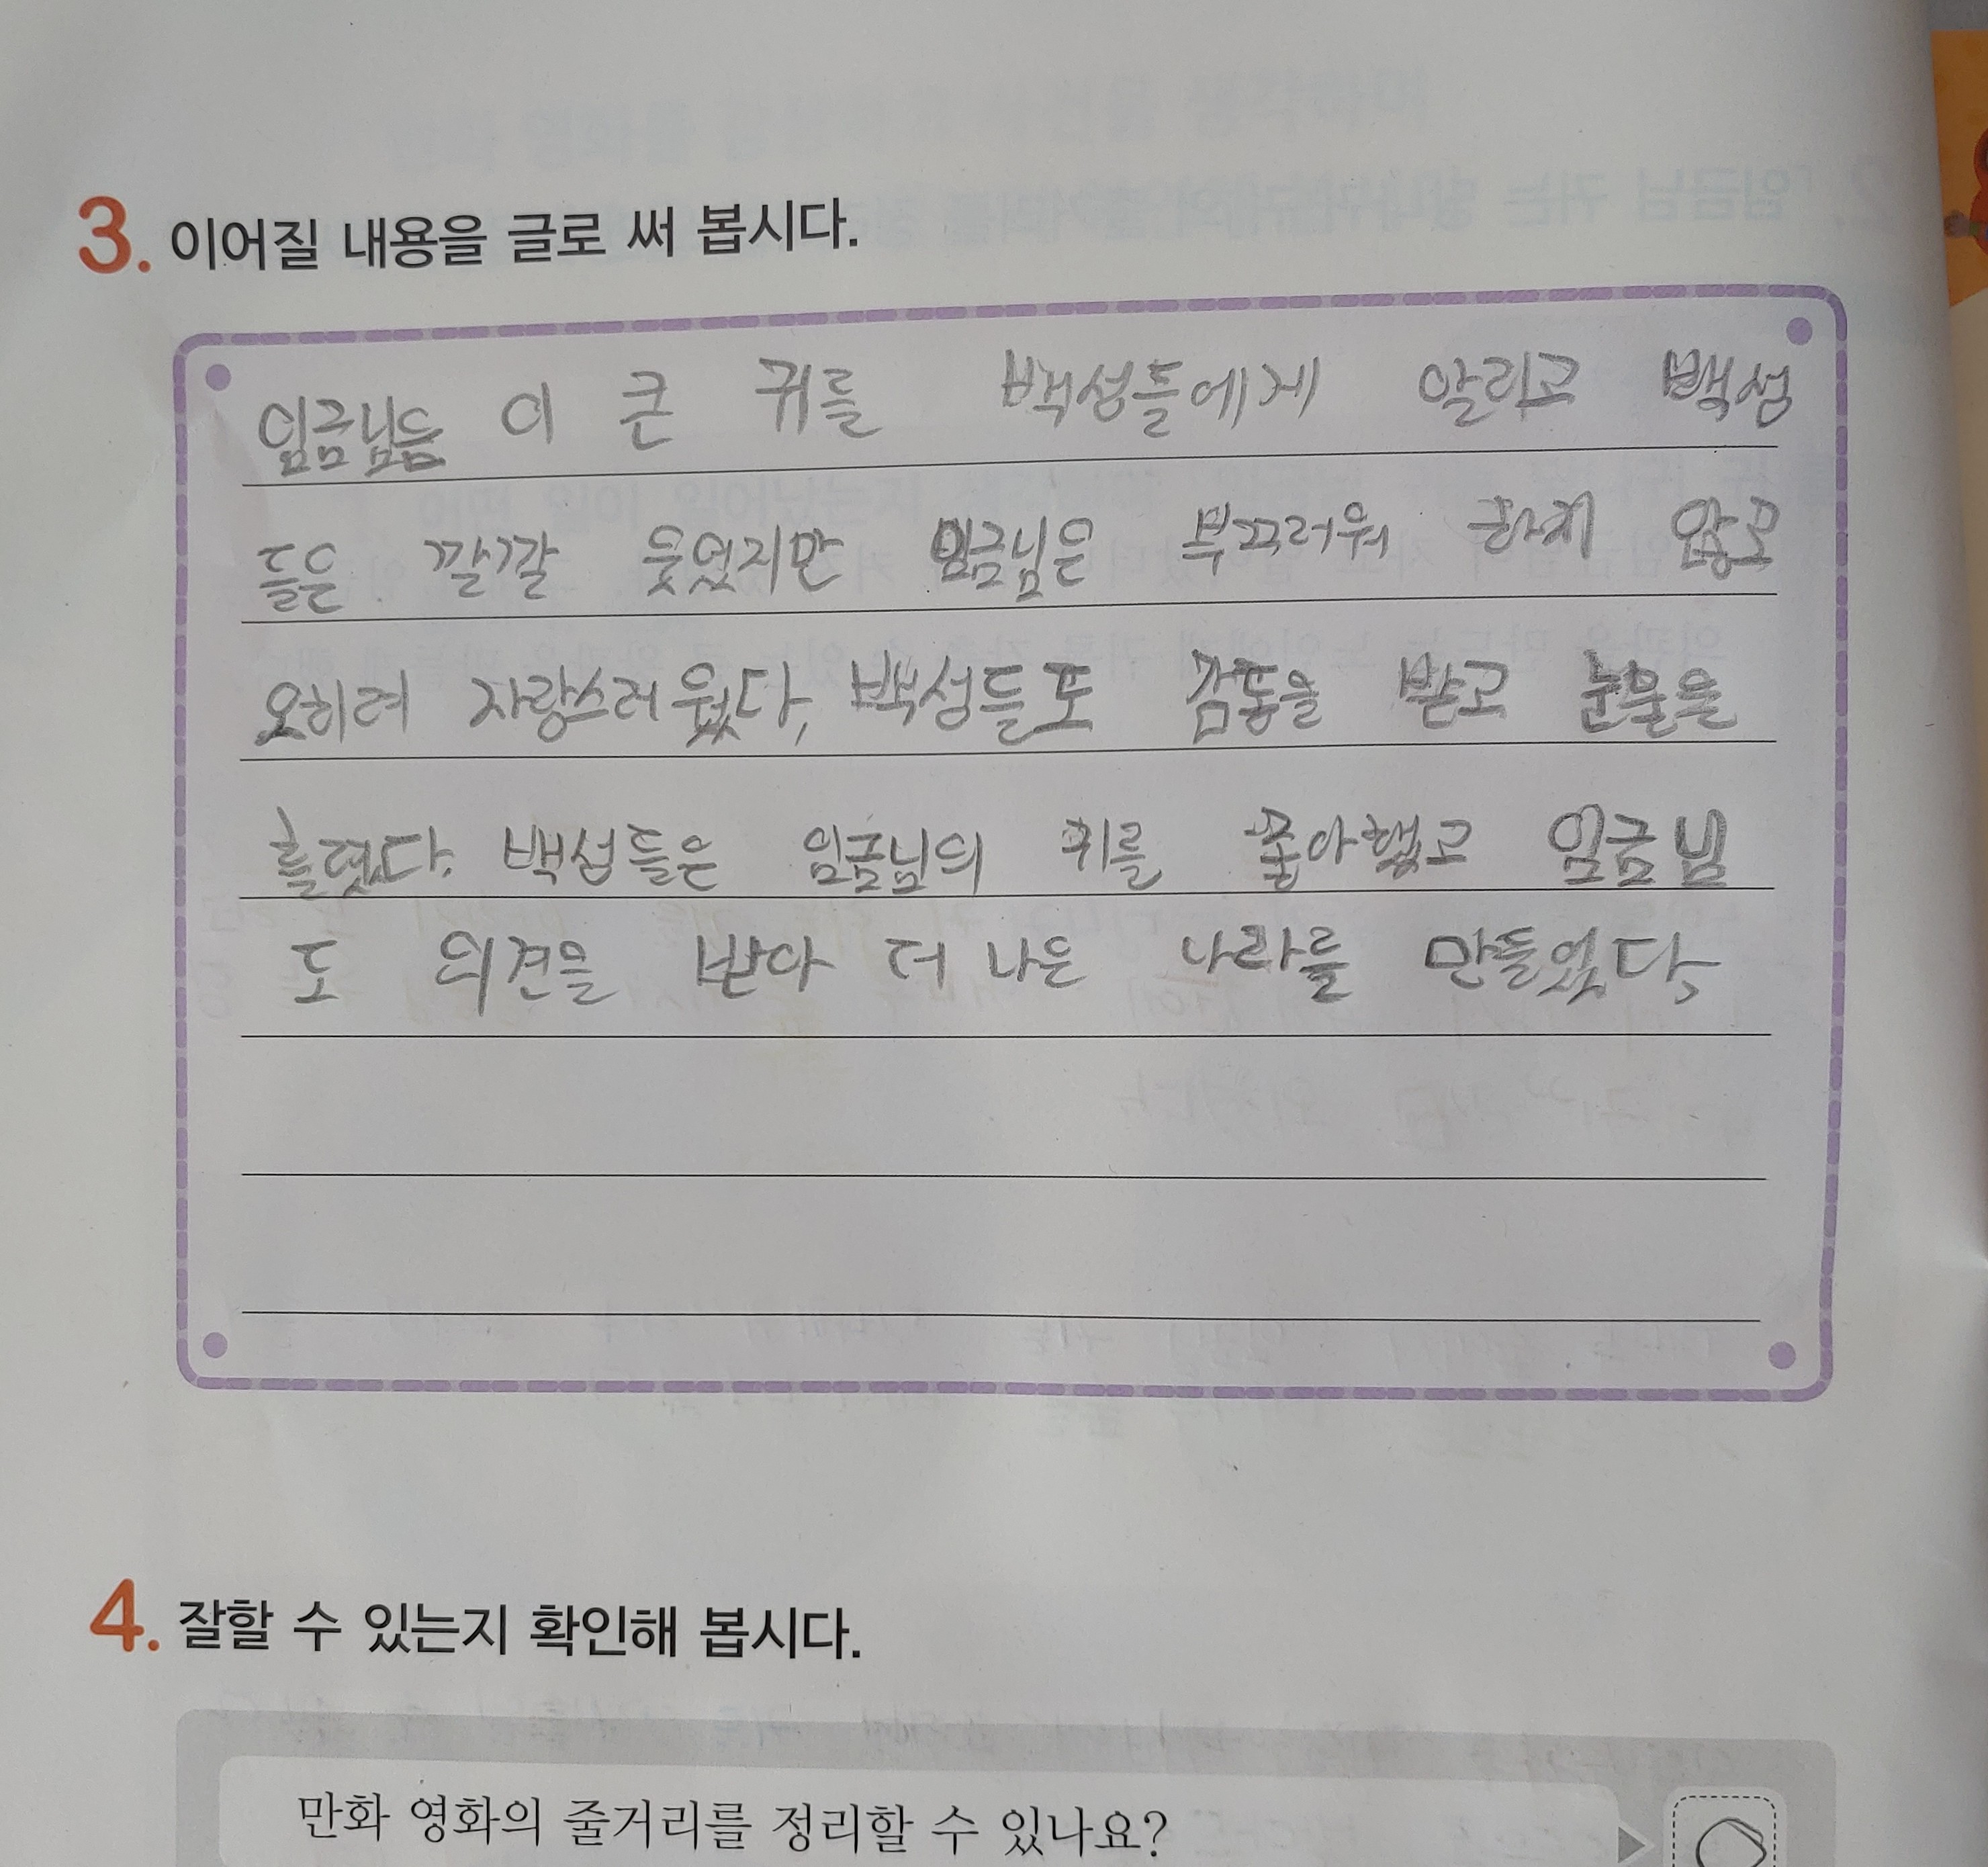 3. 이어질 내용을 글로 써 봅시다.
임금님은 이 큰 귀를 백성들에게 알리고 백성
들은 깔깔 웃었지만 임금님은 부끄러워 하지 않고
오히려 자랑스러웠다, 백성들도 감동을 받고 눈물을
흘렸다. 백성들은 임금님의 귀를 좋아했고 임금님
도 의견을 받아 더 나은 나라를 만들었다,
4. 잘할 수 있는지 확인해 봅시다.
만화 영화의 줄거리를 정리할 수 있나요?